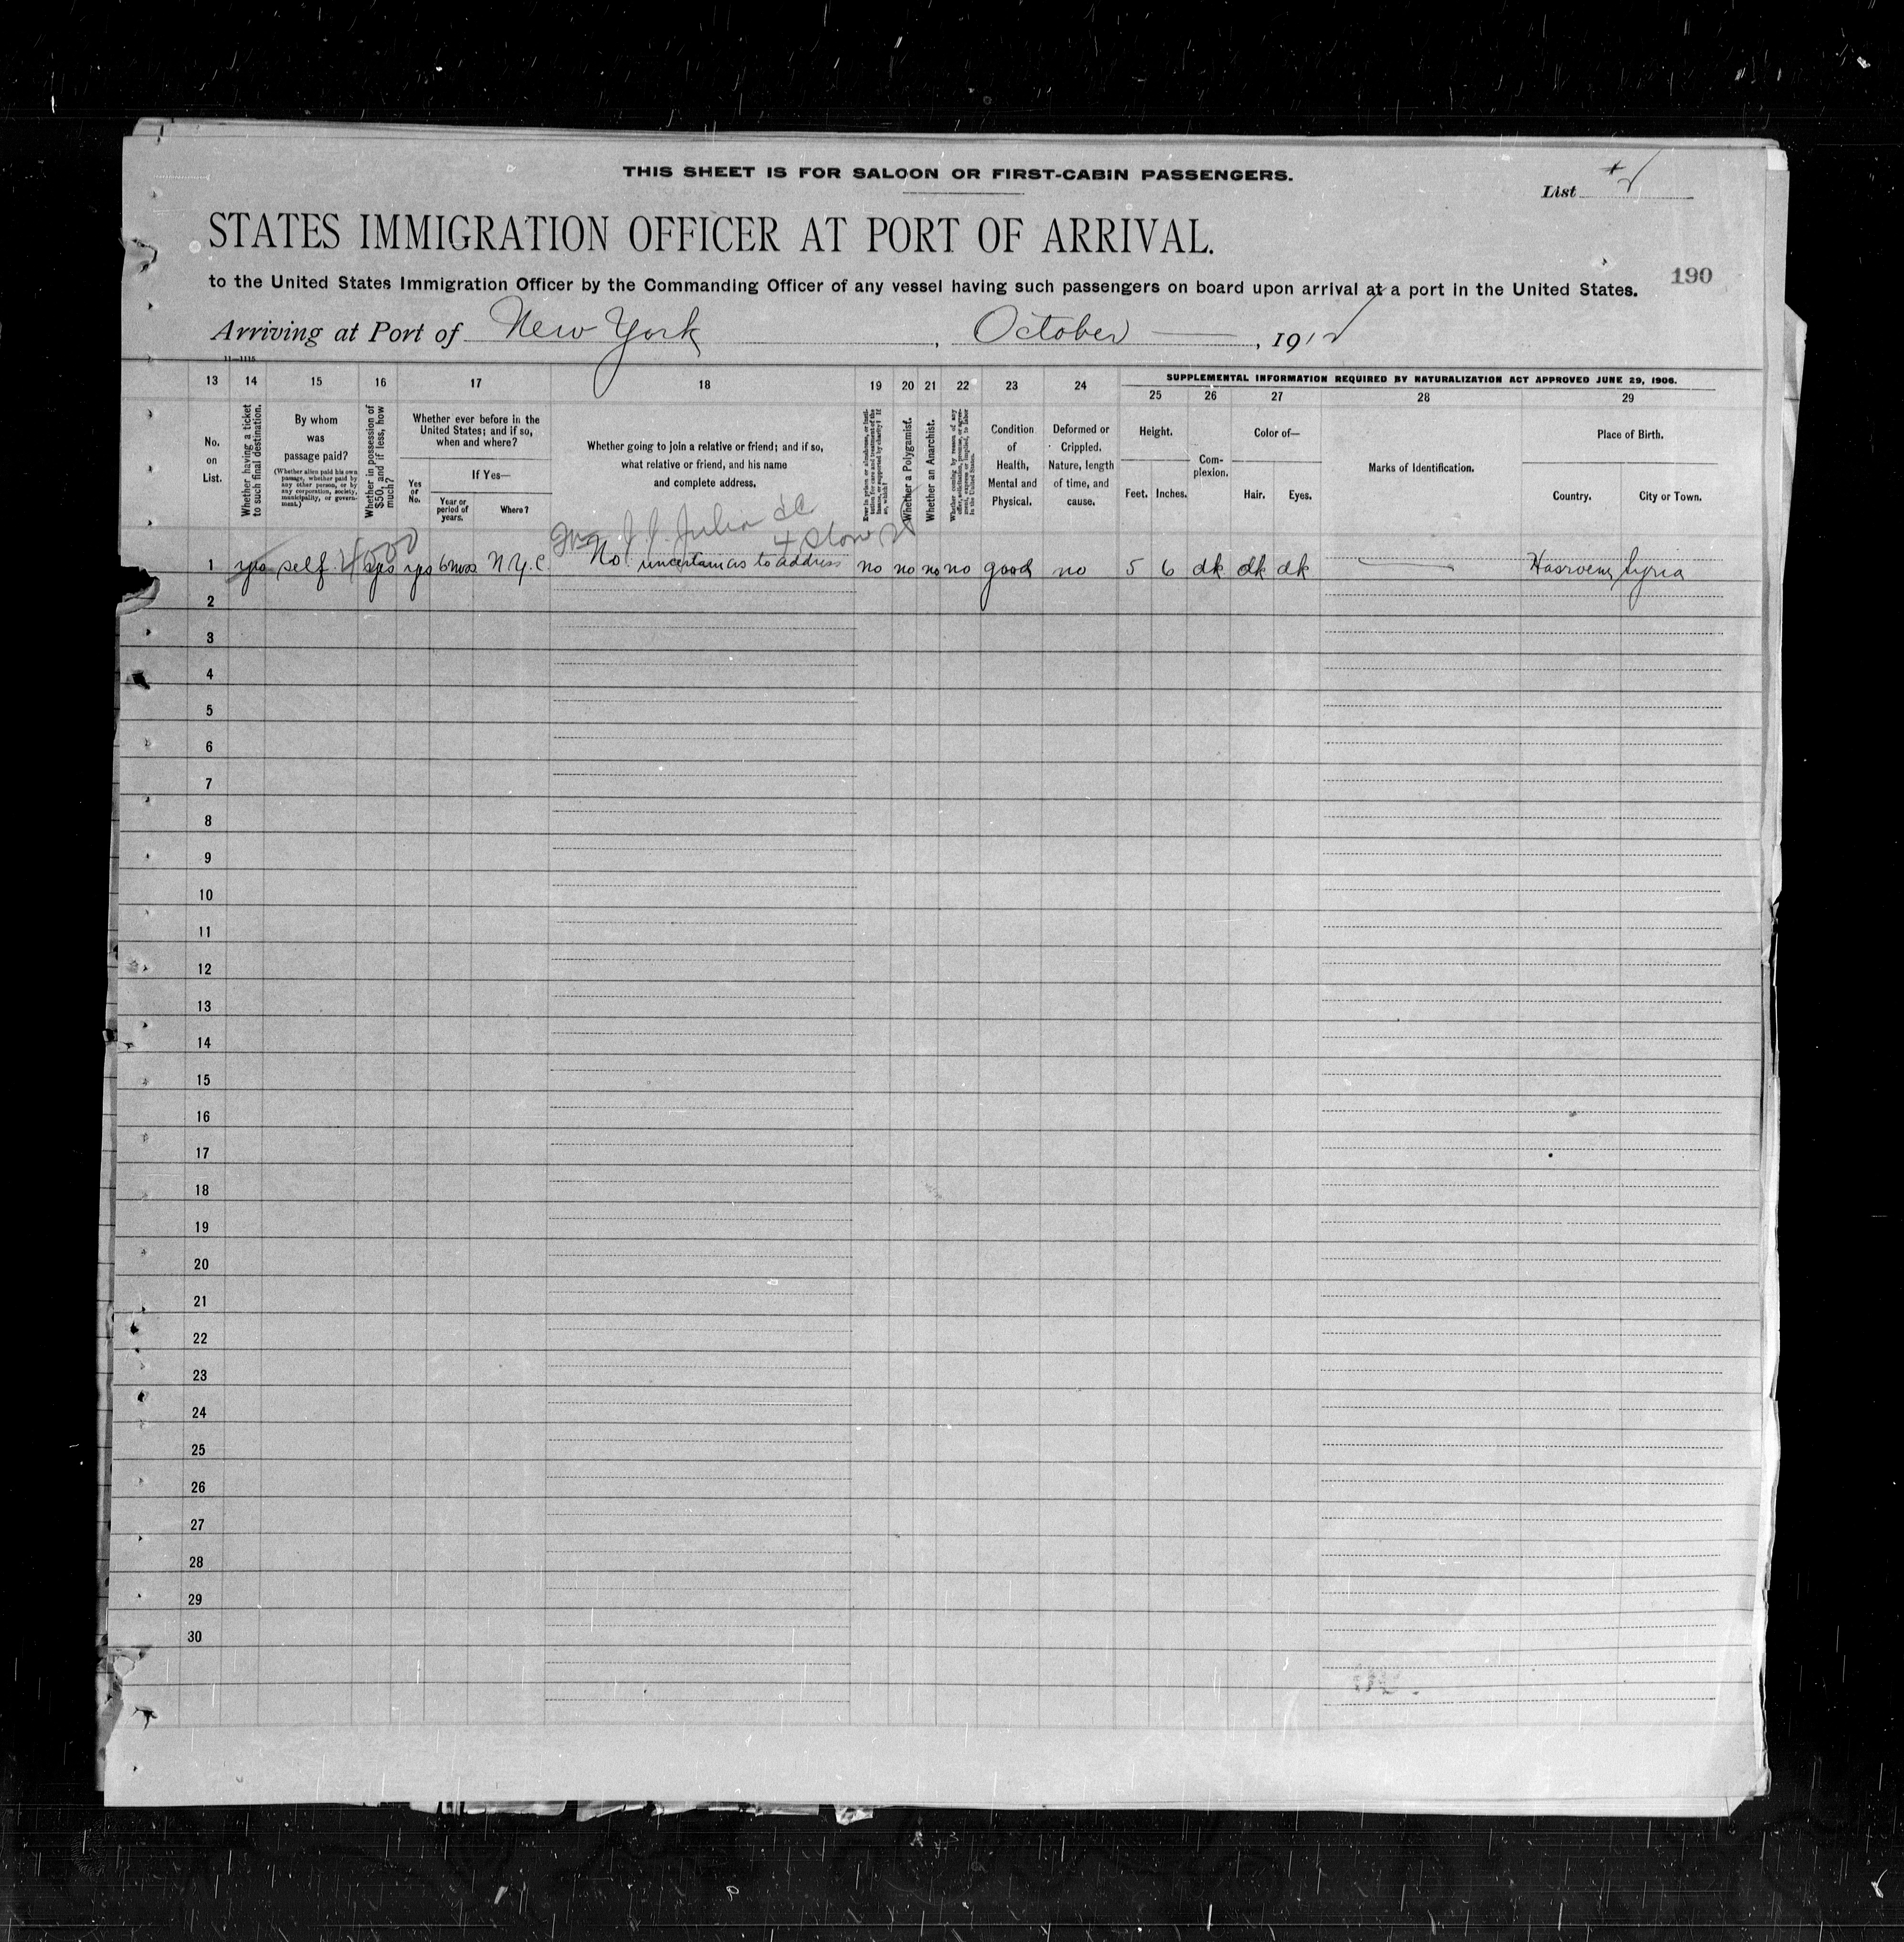 THIS SHEET IS FOR SALOON OR FIRST-CABIN PASSENGERS.
List
STATES IMMIGRATION OFFICER AT PORT OF ARRIVAL.
190
to the United States Immigration Officer by the Commanding Officer of any vessel having such passengers on board upon arrival at a port in the United States.
Arriving at Port of New York, October, 1912
11—1115
13 14 15 16 17 18 19 20 21 22 23 24
SUPPLEMENTAL INFORMATION REQUIRED BY NATURALIZATION ACT APPROVED JUNE 29, 1906.
25 26 27 28 29
No. on List.
Whether having a ticket to such final destination.
By whom was passage paid?
(Whether alien paid his own passage, whether paid by any other person, or by any corporation, society, municipality, or government.)
Whether in possession of $50, and if less, how much?
Whether ever before in the United States; and if so, when and where?
If Yes—
Yes or No.
Year or period of years.
Where?
Whether going to join a relative or friend; and if so, what relative or friend, and his name and complete address.
Ever in prison or almshouse, or institution for care and treatment of the insane, or supported by charity? If so, which?
Whether a Polygamist.
Whether an Anarchist.
Whether coming by reason of any offer, solicitation, promise, or agreement, express or implied, to labor in the United States.
Condition of Health, Mental and Physical.
Deformed or Crippled. Nature, length of time, and cause.
Height.
Feet. Inches.
Complexion.
Color of—
Hair. Eyes.
Marks of Identification.
Place of Birth.
Country. City or Town.
4 Stone
1 yes self yes yes 6 mos N.Y.C. No. uncertain as to address no no no no good no 5 6 dk dk dk Syria
2
3
4
5
6
7
8
9
10
11
12
13
14
15
16
17
18
19
20
21
22
23
24
25
26
27
28
29
30